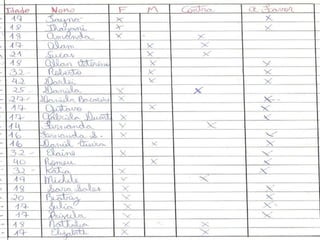 Idade Nome F M Contra A Favor
17 Tayna X X
18 Thayane X X
18 Amanda X X
17 Alan X X
21 Lucas X X
18 Allan X X
32 Roberto X X
42 X X
25 Daniela X X
27 Daniela X X
17 Gustavo X X
17 Gabriela X X
14 Fernanda X X
16 Fernanda S. X X
16 David Vieira X X
32 Elaine X X
40 Romeu X X
32 Katia X X
19 Michele X X
18 Sara Sales X X
20 Beatriz X X
17 Julia X X
17 Priscila X X
18 Nathalia X X
17 Elizabeth X X